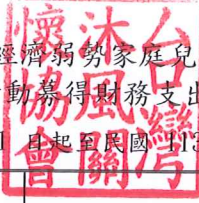 經濟弱勢家庭兒
動募得財務支出
日起至民國 113
台灣
沐風關
懷協會